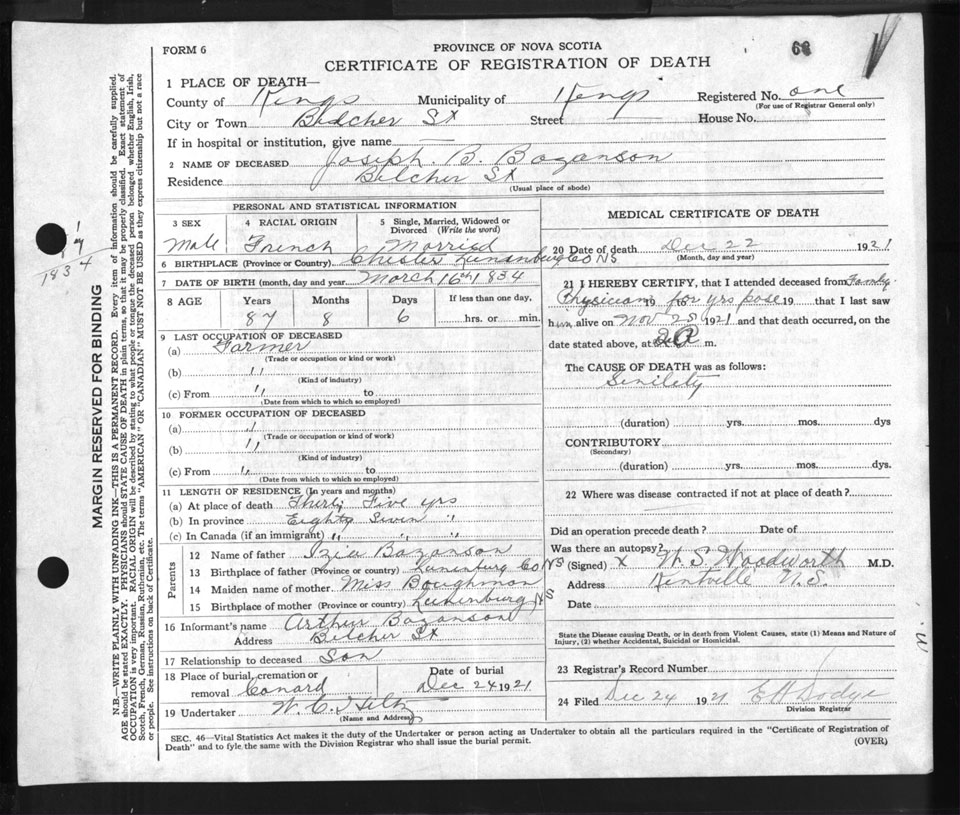 FORM 6
PROVINCE OF NOVA SCOTIA
68
CERTIFICATE OF REGISTRATION OF DEATH
1 PLACE OF DEATH—
County of Kings Municipality of Kings Registered No. one
(For use of Registrar General only)
City or Town Belcher St Street House No.
If in hospital or institution, give name
2 NAME OF DECEASED Joseph. B. Bazanson
Residence Belcher St
(Usual place of abode)
PERSONAL AND STATISTICAL INFORMATION
3 SEX 4 RACIAL ORIGIN 5 Single, Married, Widowed or Divorced (Write the word)
Male French Married
6 BIRTHPLACE (Province or Country) Chester Lunenburg Co NS
7 DATE OF BIRTH (month, day and year) March 16th 1834
8 AGE Years Months Days If less than one day,
87 8 6 hrs. or min.
9 LAST OCCUPATION OF DECEASED
(a) Farmer
(Trade or occupation or kind or work)
(b) "
(Kind of industry)
(c) From " to
(Date from which to which so employed)
10 FORMER OCCUPATION OF DECEASED
(a) "
(Trade or occupation or kind of work)
(b) "
(Kind of industry)
(c) From " to
(Date from which to which so employed)
11 LENGTH OF RESIDENCE (In years and months)
(a) At place of death Thirty Five yrs
(b) In province Eighty Seven "
(c) In Canada (if an immigrant) " " "
Parents
12 Name of father Bazanson
13 Birthplace of father (Province or country) Lunenburg Co NS
14 Maiden name of mother Miss Boughman
15 Birthplace of mother (Province or country) Lunenburg NS
16 Informant's name Arthur Bazanson
Address Belcher St
17 Relationship to deceased Son
18 Place of burial, cremation or Date of burial
removal Conard Dec 24 1921
19 Undertaker W. C. Hiltz
(Name and Address)
MEDICAL CERTIFICATE OF DEATH
20 Date of death Dec 22 1921
(Month, day and year)
21 I HEREBY CERTIFY, that I attended deceased from Family
Physician 19 for yrs 19 that I last saw
him alive on Nov 25 1921 and that death occurred, on the
date stated above, at m.
The CAUSE OF DEATH was as follows:
Senility
(duration) yrs. mos. dys
CONTRIBUTORY
(Secondary)
(duration) yrs. mos. dys.
22 Where was disease contracted if not at place of death?
Did an operation precede death? Date of
Was there an autopsy?
(Signed) X W. S. Woodworth M.D.
Address Kentville N.S.
Date
State the Disease causing Death, or in death from Violent Causes, state (1) Means and Nature of
Injury, (2) whether Accidental, Suicidal or Homicidal.
23 Registrar's Record Number
24 Filed Dec 24 1921 E H Dodge
Division Registrar
SEC. 46—Vital Statistics Act makes it the duty of the Undertaker or person acting as Undertaker to obtain all the particulars required in the "Certificate of Registration of
Death" and to fyle the same with the Division Registrar who shall issue the burial permit. (OVER)
MARGIN RESERVED FOR BINDING
N.B.—WRITE PLAINLY WITH UNFADING INK—THIS IS A PERMANENT RECORD. Every item of information should be carefully supplied.
AGE should be stated EXACTLY. PHYSICIANS should STATE CAUSE OF DEATH in plain terms, so that it may be properly classified. Exact statement of
OCCUPATION is very important. RACIAL ORIGIN will be described by stating to what people or tongue the deceased person belonged whether English, Irish,
Scotch, French, German, Russian, Ruthenian, etc. The terms "AMERICAN" OR "CANADIAN" MUST NOT BE USED as they express citizenship but not a race
or people. See instructions on back of Certificate.
1834